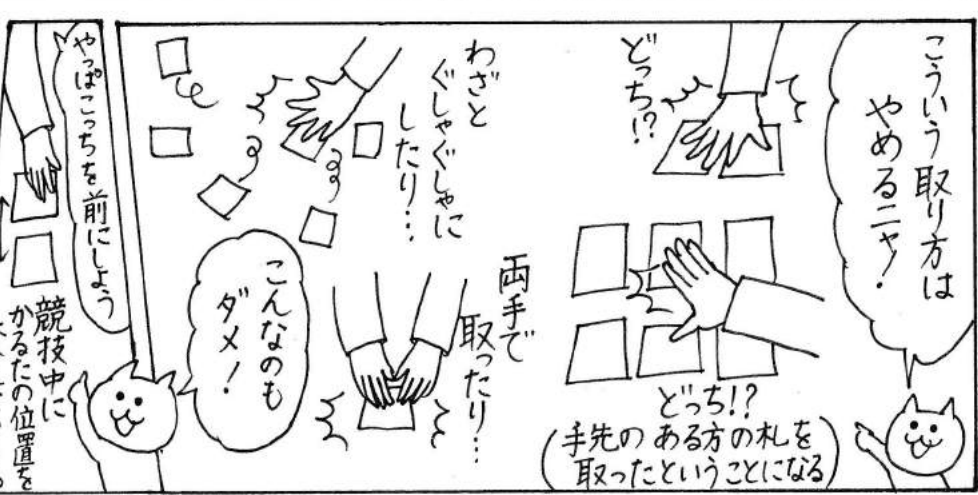 こういう取り方は
やめるニャ!
どっち!?
どっち!?
(手先のある方の札を
取ったということになる)
わざと
ぐしゃぐしゃに
したり…
両手で
取ったり…
こんなのも
ダメ!
やっぱこっちを前にしよう
競技中に
かるたの位置を